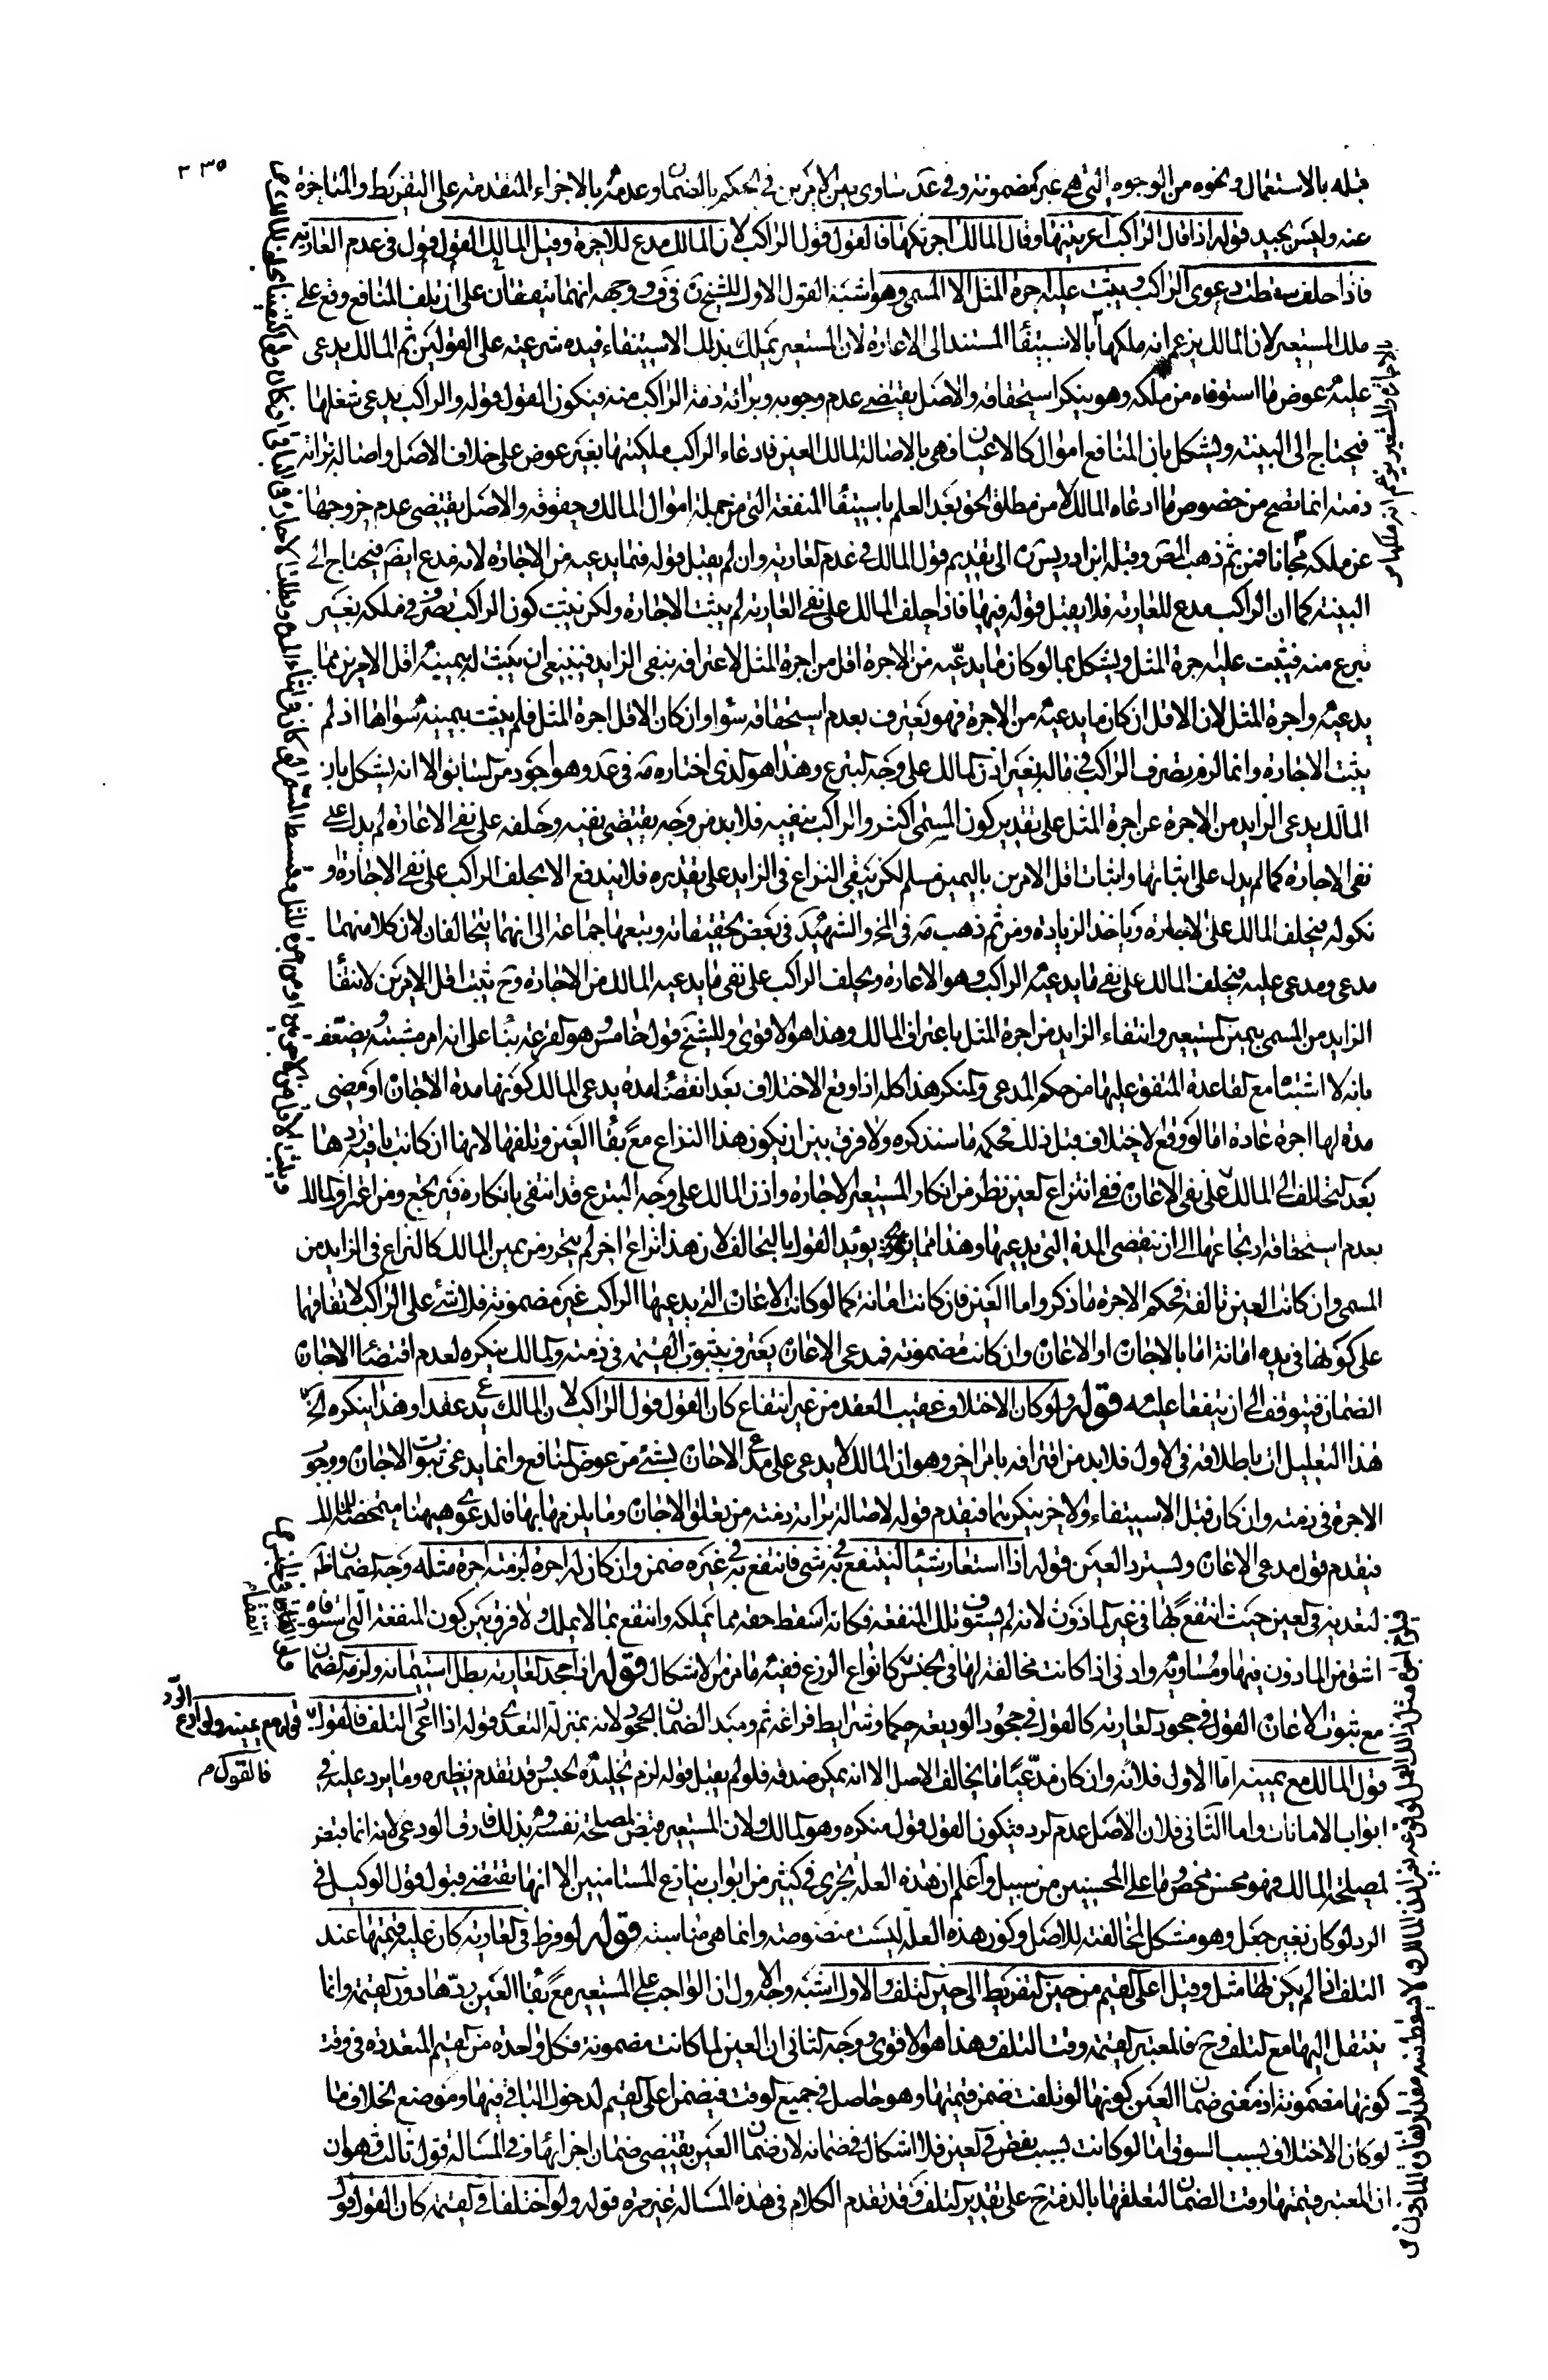 ٢٣٥
قبله بالاستعمال ونحوه من الوجوه التي هي غير مضمونة وفي عد ساوى بين الامرين في الحكم بالضمان وعدمه بالاجزاء المتقدمة على التفريط والمتاخرة
عنه وليس بجيد قوله اذا قال الراكب اعرتنيها وقال المالك اجرتكها فالقول قول الراكب لان المالك مدع للاجرة وقيل المالك القول قوله في عدم العارية
فاذا حلف سقطت دعوى الراكب ويثبت عليه اجرة المثل لا المسمى وهو اشبه القول الاول للشيخ ره في ف ووجهه انهما متفقان على ان تلف المنافع وقع على
ملك المستعير لان المالك يزعم انه ملكها بالاستيفاء المستند الى الاعارة لان المستعير يملك بذلك الاستيفاء فيده شرعية على القولين ثم المالك يدعى
عليه عوض ما استوفاه من ملكه وهو ينكر استحقاقه والاصل يقتضى عدم وجوبه وبرائة ذمة الراكب منه فيكون القول قوله والراكب يدعى شغلها
فيحتاج الى البينة ويشكل بان المنافع اموال كالاعيان فهي بالاصالة لمالك العين فادعاء الراكب ملكيتها بغير عوض على خلاف الاصل واصالة برائة
ذمته انما تصح من خصوص ما ادعاه المالك لا من مطلق الحق بعد العلم باستيفاء المنفعة التي من جملة اموال المالك وحقوقه والاصل يقتضى عدم خروجها
عن ملكه مجانا فمن ثم ذهب المص وقبله ابن ادريس ره الى تقديم قول المالك في عدم العارية وان لم يقبل قوله فيما يدعيه من الاجارة لانه مدع ايضا فيحتاج الى
البينة كما ان الراكب مدع للعارية فلا يقبل قوله فيها فاذا حلف المالك على نفى العارية لم يثبت الاجارة ولكن يثبت كون الراكب تصرف في ملكه بغير
تبرع منه فيثبت عليه اجرة المثل ويشكل بما لو كان ما يدعيه من الاجرة اقل من اجرة المثل لاعترافه بنفى الزايد فينبغى ان يثبت له بيمينه اقل الامرين مما
يدعيه واجرة المثل لان الاقل ان كان ما يدعيه من الاجرة فهو يعترف بعدم استحقاقه سواه وان كان الاقل اجرة المثل فلم يثبت بيمينه سواها اذ لم
يثبت الاجارة وانما لزم تصرف الراكب في ماله بغير اذن المالك على وجه التبرع وهذا هو الذى اختاره مه في عد وهو اجود من السابق الا انه يشكل بان
المالك يدعى الزايد من الاجرة عن اجرة المثل على تقدير كون المسمى اكثر والراكب ينفيه فلا بد من وجه يقتضى نفيه وحلفه على نفى الاعارة لم يدل على
نفى الاجارة كما لم يدل على اثباتها واثبات اقل الامرين باليمين مسلم لكن يبقى النزاع في الزايد على تقديره فلا يندفع الا بحلف الراكب على نفى الاجارة او
نكوله فيحلف المالك على الاجارة وياخذ الزيادة ومن ثم ذهب مه في المخ والشهيد في بعض تحقيقاته وتبعهما جماعة الى انهما يتحالفان لان كلا منهما
مدعى ومدعى عليه فيحلف المالك على نفى ما يدعيه الراكب وهو الاعارة ويحلف الراكب على نفى ما يدعيه المالك من الاجارة وح يثبت اقل الامرين لانتفاء
الزايد من المسمى بيمين المستعير وانتفاء الزايد من اجرة المثل باعتراف المالك وهذا هو الاقوى وللشيخ قول خامس هو القرعة بناء على انه امر مشتبه ويضعف
بانه لا اشتباه مع القاعدة المتفق عليها من حكم المدعى والمنكر هذا كله اذا وقع الاختلاف بعد انقضاء مدة يدعى المالك كونها مدة الاجارة او مضى
مدة لها اجرة عادة اما لو وقع الاختلاف قبل ذلك فحكمه ما سنذكره ولا فرق بين ان يكون هذا النزاع مع بقاء العين وتلفها لانها ان كانت باقية ردها
بعد التحالف الى المالك على نفى الاعارة ففى انتزاع العين نظر من انكار المستعير الاجارة واذن المالك على وجه التبرع قد انتفى بانكاره فيرتجع ومن اعتراف المالك
بعدم استحقاقه ارتجاعها الى ان تنقضى المدة التي يدعيها وهذا مما يؤيد القول بالتحالف لان هذا نزاع اخر لم يتحرر من يمين المالك كالنزاع في الزايد من
المسمى وان كانت العين تالفة فحكم الاجرة ما ذكر واما العين فان كانت امانة كما لو كانت الاعارة التي يدعيها الراكب غير مضمونة فلا شئ على الراكب لاتفاقهما
على كونها في يده امانة اما بالاجارة او الاعارة وان كانت مضمونة فمدعى الاعارة يعترف بثبوت القيمة في ذمته والمالك ينكره لعدم اقتضاء الاجارة
الضمان فيتوقف الى ان يتفقا عليه قوله ولو كان الاختلاف عقيب العقد من غير انتفاع كان القول قول الراكب لان المالك يدعى عقدا وهذا ينكره الخ
هذا التعليل ات باطلاقه في الاول فلا بد من اقترافه بامر اخر وهو ان المالك لا يدعى على مدعى الاعارة بشئ من عوض المنافع وانما يدعى ثبوت الاجارة ووجوب
الاجرة في ذمته وان كان قبل الاستيفاء والاخر ينكرهما فيقدم قوله لاصالة برائة ذمته من تعلق الاجارة وما يلزمها بها فالدعوى هيهنا متمحضة للمالك
فيقدم قول مدعى الاعارة ويسترد العين قوله اذا استعار شيئا لينتفع به في شئ فانتفع به في غيره ضمن وان كان له اجرة لزمته اجرة مثله وجه الضمان ظاهر
لتعديه في العين حيث انتفع بها في غير الماذون لانه لم يستوف تلك المنفعة فكانه اسقط حقه مما يملكه وانتفع بما لا يملك ولا فرق بين كون المنفعة التي استوفاها
اشق من الماذون فيها ومساوية وادنى اذا كانت مخالفة لها في الجنس كانواع الزرع ففيه ما مر من الاشكال قوله اذا جحد العارية بطل استيمانه ولزمه الضمان
مع ثبوت الاعارة القول في جحود العارية كالقول في جحود الوديعة حكما وشرايط فراغه ثم ومبدا الضمان الجحود لانه بمنزلة التعدى قوله اذا ادعى التلف فالقول
قوله مع يمينه ولو ادعى الرد
فالقول م
قول المالك مع يمينه اما الاول فلانه وان كان مدعيا ما يخالف الاصل الا انه يمكن صدقه فلو لم يقبل قوله لزم تخليده الحبس وقد تقدم نظيره وما يرد عليه في
ابواب الامانات واما الثانى فلان الاصل عدم الرد فيكون القول قول منكره وهو المالك ولان المستعير قبض لمصلحة نفسه وبذلك فارق الودعى لانه انما قبض
لمصلحة المالك فهو محسن محض وما على المحسنين من سبيل واعلم ان هذه العلة تجرى في كثير من ابواب تنازع المستامنين الا انها تقتضى قبول قول الوكيل في
الرد لو كان بغير جعل وهو مشكل لمخالفته للاصل وكون هذه العلة ليست منصوصة وانما هي مناسبة قوله لو فرط في العارية كان عليه قيمتها عند
التلف اذا لم يكن لها مثل وقيل اعلى القيم من حين التفريط الى حين التلف والاول اشبه وجه الاول ان الواجب على المستعير مع بقاء العين ردها دون القيمة وانما
ينتقل اليها مع التلف وح فالمعتبر القيمة وقت التلف وهذا هو الاقوى ووجه الثانى ان العين لما كانت مضمونة فكل واحدة من القيم المتعددة في وقت
كونها مضمونة اذ معنى ضمان العين كونها لو تلفت ضمن قيمتها وهو حاصل في جميع الوقت فيضمن اعلى القيم لدخول الباقى فيها وموضع الخلاف ما
لو كان الاختلاف بسبب السوق اما لو كانت بسبب نقص في العين فلا اشكال في ضمانه لان ضمان العين يقتضى ضمان اجزائها وفي المسالة قول ثالث وهو ان
ان المعتبر قيمتها وقت الضمان لتعلقها بالذمة ح على تقدير التلف وقد تقدم الكلام في هذه المسالة غير مرة قوله ولو اختلفا في القيمة كان القول قول